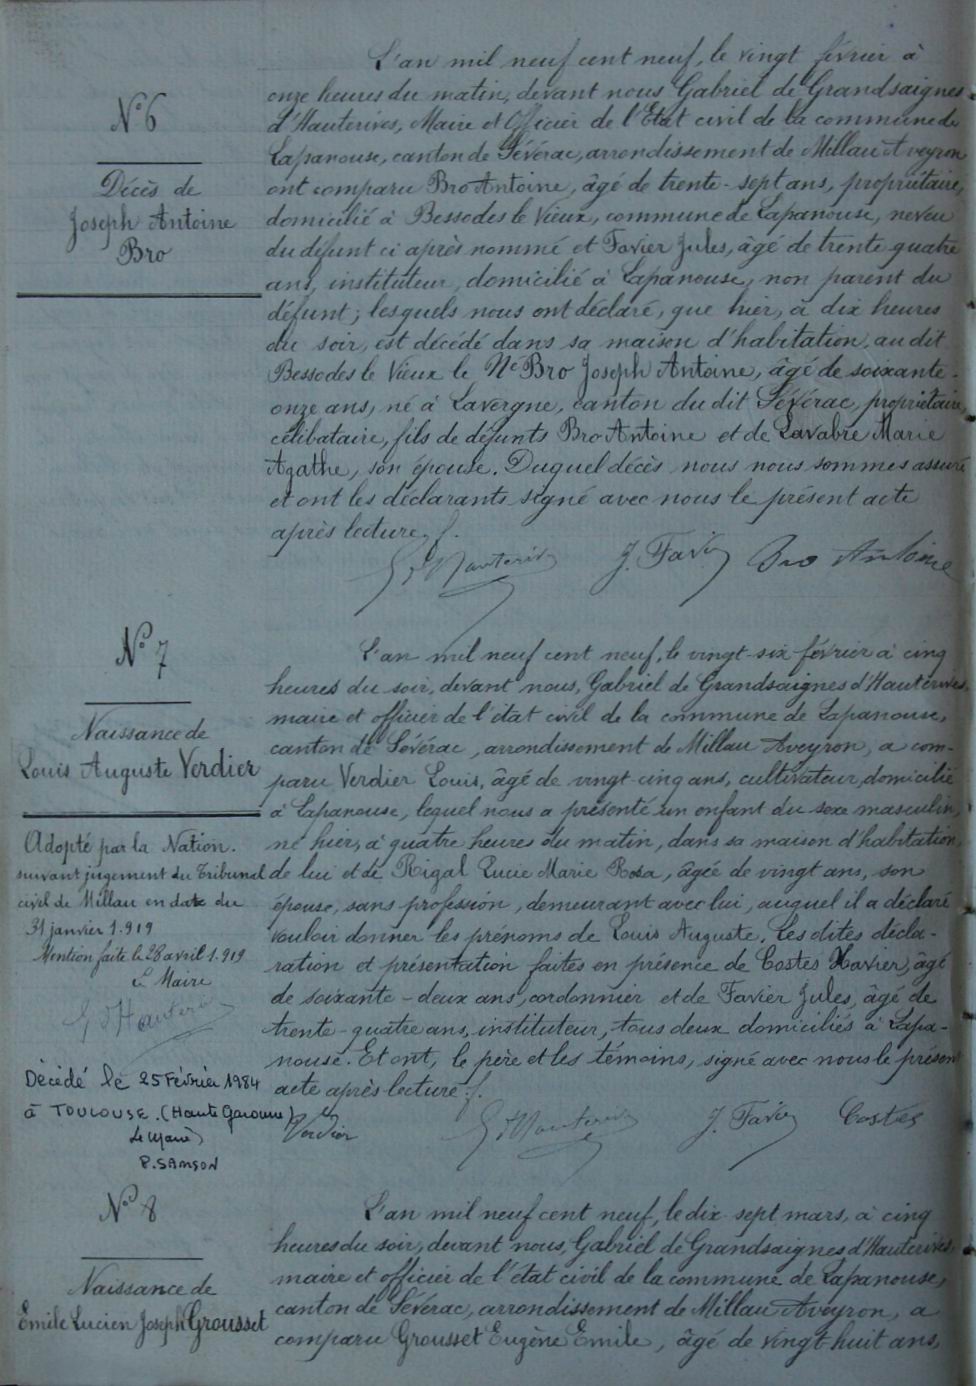 N° 6
Décès de
Joseph Antoine
Bro
L'an mil neuf cent neuf, le vingt février à
onze heures du matin, devant nous Gabriel de Grandsaignes
d'Hauterives, Maire et Officier de l'Etat civil de la commune de
Lapanouse, canton de Sévérac, arrondissement de Millau Aveyron
ont comparu Bro Antoine, âgé de trente-sept ans, propriétaire,
domicilié à Bessodes le Vieux, commune de Lapanouse, neveu
du défunt ci après nommé et Favier Jules, âgé de trente quatre
ans, instituteur, domicilié à Lapanouse, non parent du
défunt; lesquels nous ont déclaré, que hier, à dix heures
du soir, est décédé dans sa maison d'habitation, au dit
Bessodes le Vieux le Né Bro Joseph Antoine, âgé de soixante-
onze ans, né à Lavergne, canton du dit Sévérac, propriétaire,
célibataire, fils de défunts Bro Antoine et de Lavabre Marie
Agathe, son épouse. Duquel décès nous nous sommes assuré
et ont les déclarants signé avec nous le présent acte
après lecture.
G d'Hauterives J. Favier Bro Antoine
N° 7
Naissance de
Louis Auguste Verdier
Adopté par la Nation.
suivant jugement du Tribunal
civil de Millau en date du
31 janvier 1.919
Mention faite le 28 avril 1.919
Le Maire
G d'Hauterives
Décédé le 25 Février 1984
à TOULOUSE. (Haute Garonne)
Le Maire
P. SANSON
L'an mil neuf cent neuf, le vingt-six février à cinq
heures du soir, devant nous, Gabriel de Grandsaignes d'Hauterives,
maire et officier de l'état civil de la commune de Lapanouse,
canton de Sévérac, arrondissement de Millau Aveyron, a com-
paru Verdier Louis, âgé de vingt cinq ans, cultivateur, domicilié
à Lapanouse, lequel nous a présenté un enfant du sexe masculin,
né hier, à quatre heures du matin, dans sa maison d'habitation,
de lui et de Rigal Lucie Marie Rosa, âgée de vingt ans, son
épouse, sans profession, demeurant avec lui, auquel il a déclaré
vouloir donner les prénoms de Louis Auguste. Les dites décla-
ration et présentation faites en présence de Costes Xavier, âgé
de soixante-deux ans, cordonnier et de Favier Jules, âgé de
trente-quatre ans, instituteur, tous deux domiciliés à Lapa-
nouse. Et ont, le père et les témoins, signé avec nous le présent
acte après lecture.
Verdier G d'Hauterives J. Favier Costes
N° 8
Naissance de
Emile Lucien Joseph Grousset
L'an mil neuf cent neuf, le dix-sept mars, à cinq
heures du soir, devant nous, Gabriel de Grandsaignes d'Hauterives,
maire et officier de l'état civil de la commune de Lapanouse,
canton de Sévérac, arrondissement de Millau Aveyron, a
comparu Grousset Eugène Emile, âgé de vingt-huit ans,